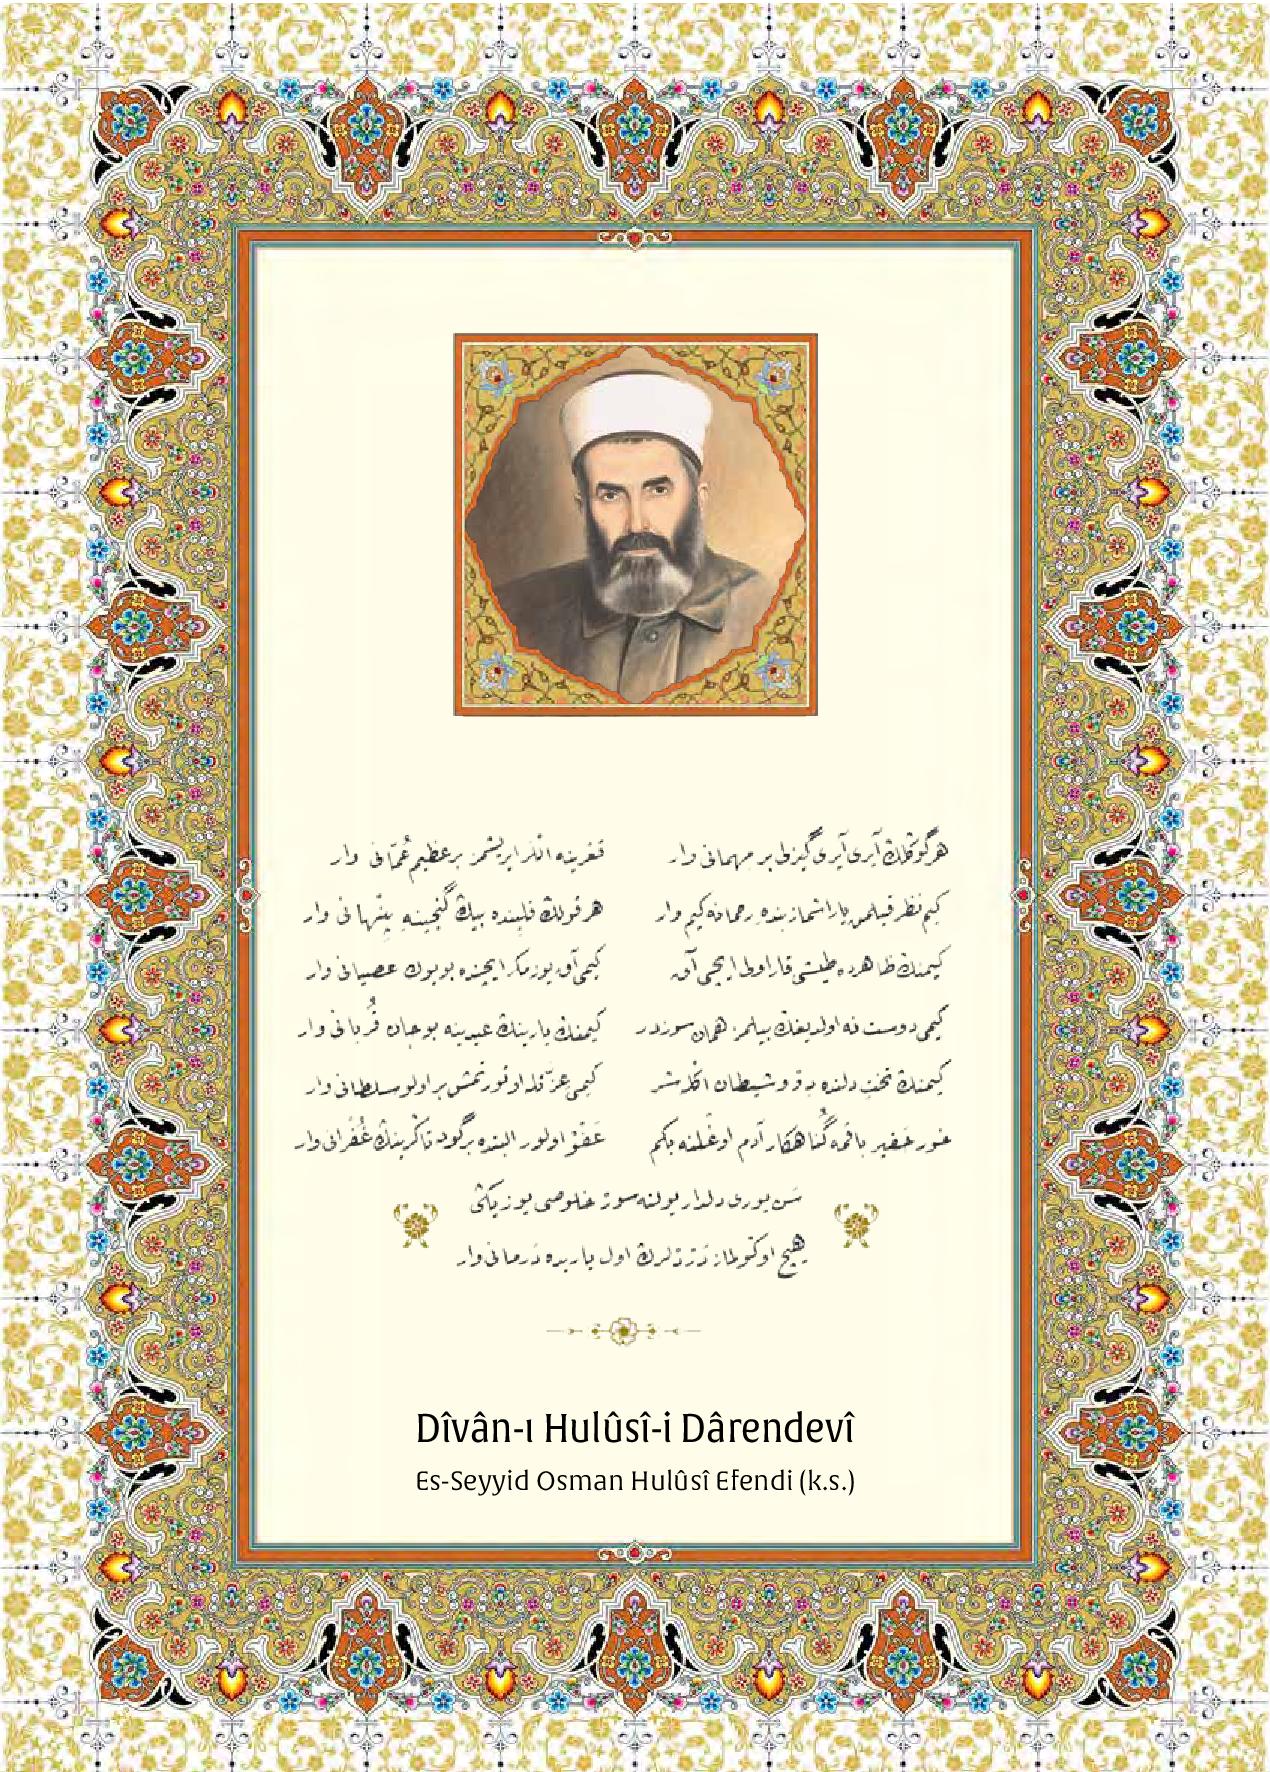 هر گوڭلڭ آيرى آيرى گيزلى بر مهمانى وار قعرينه انلر ايريشمز بر عظيم عُمّانى وار
كيم نظر قيلمز ياراتماز بنده هر قولڭ قلبنده بيڭ گنجينهٔ پنهانى وار
كيمنڭ ظاهرده طيشى قارا ولى ايچى آق كيمى آق يوز مكر ايچنده بويوك عصيانى وار
كيمى دوست نه اولديغڭ بيلمز همان سوزدر كيمنڭ يارينڭ عيدينه بو جان قُربانى وار
كيمنڭ تخت دلنده ديو و شيطان اگلشر كيمى عزّ قلـه اوتورتمش بر اولو سلطانى وار
خور حقير باقمه گُناهكار آدم اوغلنه كم عَفْوْ اولور البنده بر گون تاڭرينڭ غُفْرانى وار
سَن يورى دلدار يولنه سوز خلوصى يوزيڭى
هيچ اوڭولماز دَرْدلرڭ اول يارده دَرمانى وار
Dîvân-ı Hulûsî-i Dârendevî
Es-Seyyid Osman Hulûsî Efendi (k.s.)